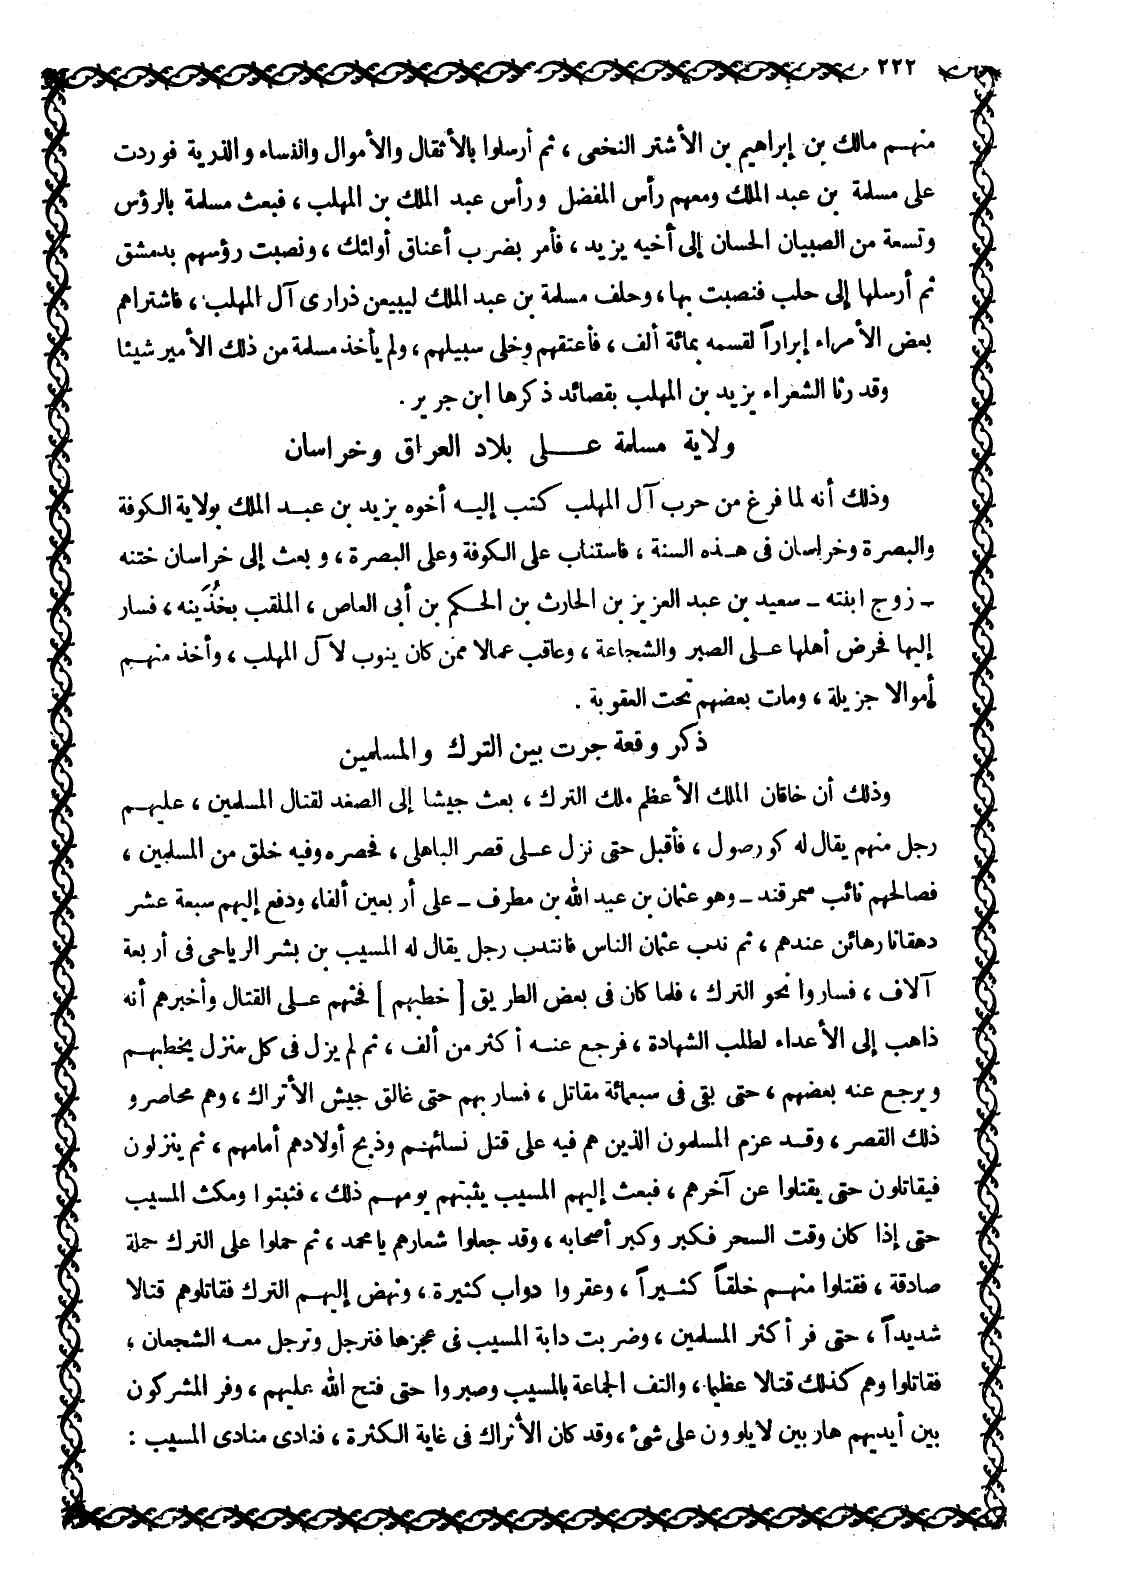 ٢٢٢
منهم مالك بن إبراهيم بن الأشتر النخعى ، ثم أرسلوا بالأثقال والأموال والنساء والذرية فوردت
على مسلمة بن عبد الملك ومعهم رأس المفضل ورأس عبد الملك بن المهلب ، فبعث مسلمة بالرؤس
وتسعة من الصبيان الحسان إلى أخيه يزيد ، فأمر بضرب أعناق أولئك ، ونصبت رؤسهم بدمشق
ثم أرسلها إلى حلب فنصبت بها ، وحلف مسلمة بن عبد الملك ليبيعن ذرارى آل المهلب ، فاشتراهم
بعض الأمراء إبراراً لقسمه بمائة ألف ، فأعتقهم وخلى سبيلهم ، ولم يأخذ مسلمة من ذلك الأمير شيئا
وقد رثا الشعراء يزيد بن المهلب بقصائد ذكرها ابن جرير .
ولاية مسلمة على بلاد العراق وخراسان
وذلك أنه لما فرغ من حرب آل المهلب كتب إليه أخوه يزيد بن عبد الملك بولاية الكوفة
والبصرة وخراسان فى هذه السنة ، فاستناب على الكوفة وعلى البصرة ، و بعث إلى خراسان ختنه
ـ زوج ابنته ـ سعيد بن عبد العزيز بن الحارث بن الحكم بن أبى العاص ، الملقب بخُذَينه ، فسار
إليها فحرض أهلها على الصبر والشجاعة ، وعاقب عمالا ممن كان ينوب لآل المهلب ، وأخذ منهم
أموالا جزيلة ، ومات بعضهم تحت العقوبة .
ذكر وقعة جرت بين الترك والمسلمين
وذلك أن خاقان الملك الأعظم ملك الترك ، بعث جيشا إلى الصغد لقتال المسلمين ، عليهم
رجل منهم يقال له كورصول ، فأقبل حتى نزل على قصر الباهلى ، فحصره وفيه خلق من المسلمين ،
فصالحهم نائب سمرقند ـ وهو عثمان بن عبد الله بن مطرف ـ على أربعين ألفا ، ودفع إليهم سبعة عشر
دهقانا رهائن عندهم ، ثم ندب عثمان الناس فانتدب رجل يقال له المسيب بن بشر الرياحى فى أربعة
آلاف ، فساروا نحو الترك ، فلما كان فى بعض الطريق [ خطبهم ] فحثهم على القتال وأخبرهم أنه
ذاهب إلى الأعداء لطلب الشهادة ، فرجع عنه أكثر من ألف ، ثم لم يزل فى كل منزل يخطبهم
ويرجع عنه بعضهم ، حتى بقى فى سبعمائة مقاتل ، فسار بهم حتى غالق جيش الأتراك ، وهم محاصرو
ذلك القصر ، وقد عزم المسلمون الذين هم فيه على قتل نسائهم وذبح أولادهم أمامهم ، ثم ينزلون
فيقاتلون حتى يقتلوا عن آخرهم ، فبعث إليهم المسيب يثبتهم يومهم ذلك ، فثبتوا ومكث المسيب
حتى إذا كان وقت السحر فكبر وكبر أصحابه ، وقد جعلوا شعارهم يا محمد ، ثم حملوا على الترك حملة
صادقة ، فقتلوا منهم خلقاً كثيراً ، وعقروا دواب كثيرة ، ونهض إليهم الترك فقاتلوهم قتالا
شديداً ، حتى فر أكثر المسلمين ، وضربت دابة المسيب فى عجزها فترجل وترجل معه الشجعان ،
فقاتلوا وهم كذلك قتالا عظيما ، والتف الجماعة بالمسيب وصبروا حتى فتح الله عليهم ، وفر المشركون
بين أيديهم هاربين لا يلوون على شئ ، وقد كان الأتراك فى غاية الكثرة ، فنادى منادى المسيب :